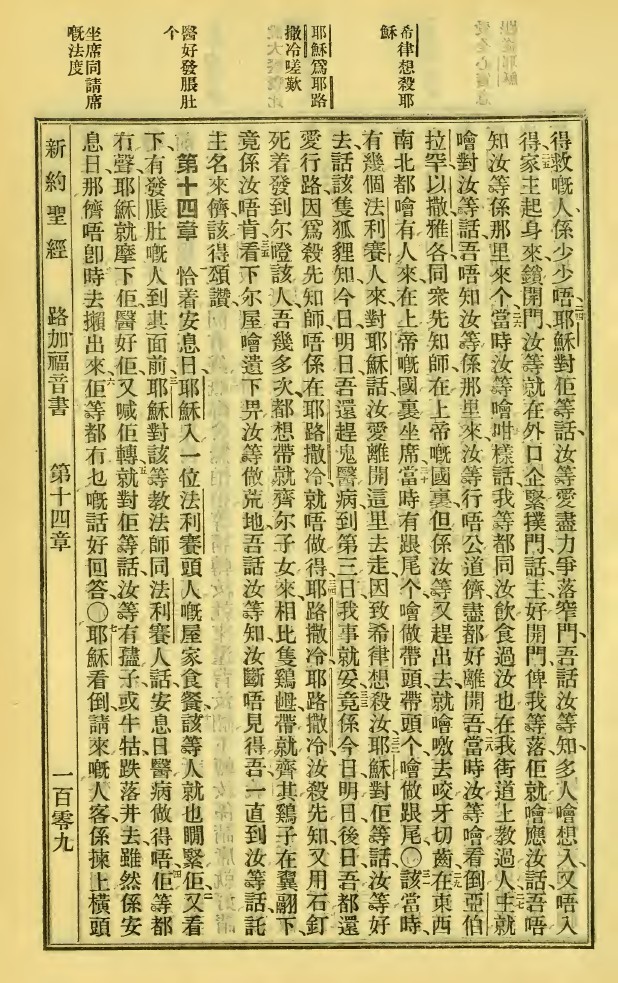 希律想殺耶
穌
耶穌爲耶路
撒冷嗟歎
醫好發脹肚
个
坐席同請席
嘅法度
得救嘅人係少少唔耶穌對佢等話汝等愛盡力爭落窄門吾話汝等知多人噲想入又唔入
得家主起身來鎖開門汝等就在外口企緊撲門話主好開門俾我等落佢就噲應汝話吾唔
知汝等係那里來个當時汝等噲咁樣話我等都同汝飲食過汝也在我街道上教過人主就
噲對汝等話吾唔知汝等係那里來汝等行唔公道儕盡都好離開吾當時汝等噲看倒亞伯
拉罕以撒雅各同衆先知師在上帝嘅國裏但係汝等又趕出去就噲噭去咬牙切齒在東西
南北都噲有人來在上帝嘅國裏坐席當時有跟尾个噲做帶頭帶頭个噲做跟尾〇該當時
有幾個法利賽人來對耶穌話汝愛離開這里去走因致希律想殺汝耶穌對佢等話汝等好
去話該隻狐狸知今日明日吾還趕鬼醫病到第三日我事就安竟係今日明日後日吾都還
愛行路因爲殺先知師唔係在耶路撒冷就唔做得耶路撒冷耶路撒冷汝殺先知又用石釘
死着發到尔磴該人吾幾多次都想帶就齊尔子女來相比隻鷄𡜵帶就齊其鷄子在翼翮下
竟係汝唔肯看下尔屋噲遺下畀汝等做荒地吾話汝等知汝斷唔見得吾一直到汝等話託
主名來儕該得頌讚
第十四章 恰着安息日耶穌入一位法利賽頭人嘅屋家食餐該等人就也瞷緊佢又看
下有發脹肚嘅人到其面前耶穌對該等教法師同法利賽人話安息日醫病做得唔佢等都
冇聲耶穌就摩下佢醫好佢又喊佢轉就對佢等話汝等有孻子或牛牯跌落井去雖然係安
息日那儕唔卽時去攋出來佢等都冇乜嘅話好回答〇耶穌看倒請來嘅人客係揀上橫頭
新約聖經 路加福音書 第十四章 一百零九